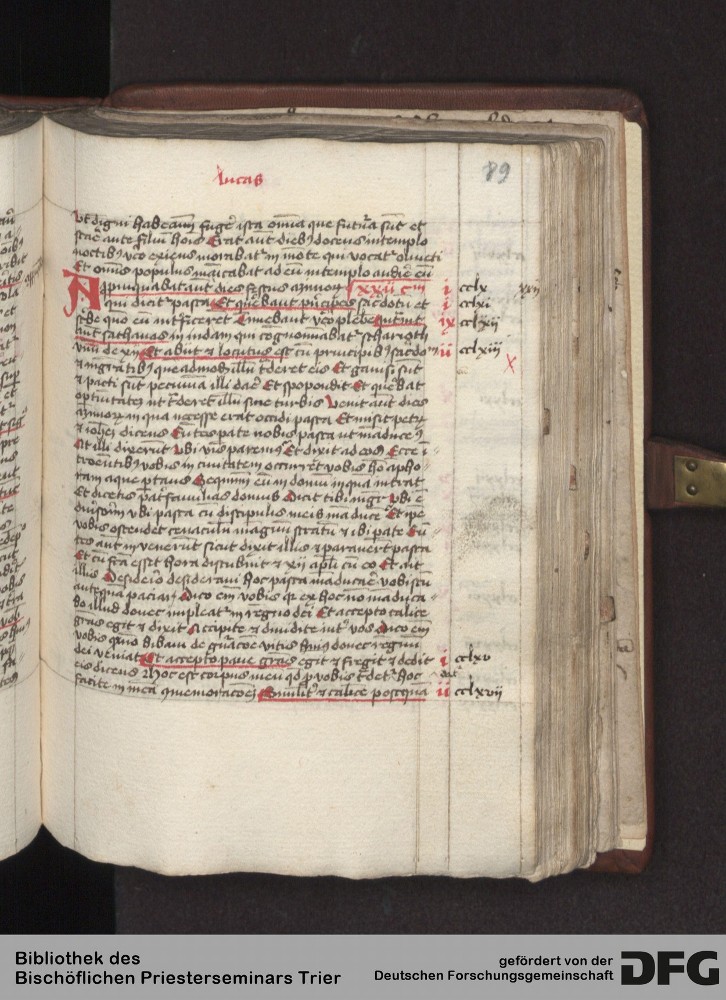 lucas
89
Ut digni habeamini fuge͛ ista omnia que futura sūt et
stare ante filiū hoīs Erat aut dieb; docens in templo
noctib; vero exiens morabat in mōte qui vocat oliueti
Et omīs populus manicabat ad eū in templo audire eū
Appropinquabat aut dies festus azimor xxii cm i cclx
qui dicit pasca Et querebant pncipes sacerdotū et i cclxi
scribe quo eū interficerēt timebant vero plebē Intravit ix cclxii
aut sathanas in iudam qui cognominabat scharioth
vnū de xii Et abiit et locutus est cū principib; sacerdo ii cclxiii
et mgratib; quēadmodū illū traderet eis Et gauisi sūt
et pacti sūt pecuniā illi dare Et spopondit Et querebat
optunitatē ut traderet illū sine turbis Venit aut dies
azimor in qua necesse erat occidi pasca Et misit petrū
et iohem dicens Euntes pate nobis pasca ut manduce
At illi dixerūt Ubi vis parem Et dixit ad eos Ecce i
troeuntib; vobis in ciuitatem occurret vobis homo apho
ram aque portans Sequimini eū in domū in qua intrat
Et dicetis patrifamilias domus Dicit tibi mgr Ubi ē
diuersoriū ubi pasca cū discipulis meis manduce Et ipe
vobis ostendet cenaculū magnū stratū et ibi pate Eu
tes aut inuenerūt sicut dixit illis et parauerūt pasca
Et cū fca esset hora discubuit et xii apli cū eo Et ait
illis Desiderio desideraui hoc pasca māducare vobiscū
antequā paciar Dico em vobis qr ex hoc nō māduca
bo illud donec impleat in regno dei Et accepto calice
gras egit et dixit Accipite et diuidite int vos Dico em
vobis quod nō bibam de gnacōe vitis huius donec regnū
dei veniat Et accepto pane gras egit et fregit et dedit i cclxv
eis dicens Hoc est corpus meū qd p vobis tradet Hoc
facite in meā cōmemoracōem Similit et calicē postquā ii cclxvii
Bibliothek des
Bischöflichen Priesterseminars Trier
gefördert von der
Deutschen Forschungsgemeinschaft
DFG